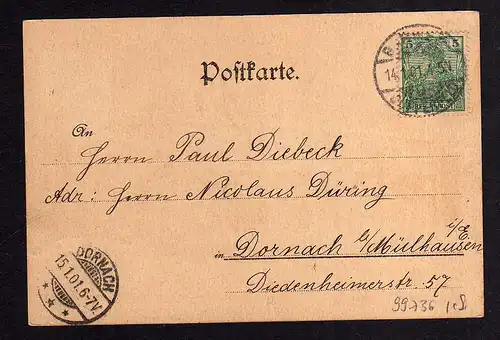 Postkarte.
5 5
14.1.01
An
Herrn Paul Diebeck
Adr: Herrn Nicolaus Düring
in Dornach b/Mülhausen i/E.
Diedenheimerstr. 57
DORNACH
15.1.01.6-7V.
99736